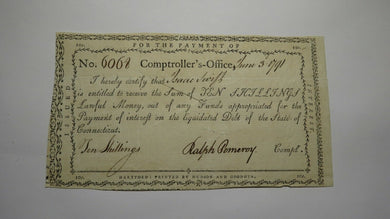 FOR THE PAYMENT OF
No. 6068 Comptroller's-Office, June 3 1791
I hereby certify that Isaac Swift
is entitled to receive the Sum of TEN SHILLINGS
Lawful Money, out of any Funds appropriated for the
Payment of interest on the liquidated Debt of the State of
Connecticut.
Ten Shillings Ralph Pomeroy Compt.
HARTFORD: PRINTED BY HUDSON AND GOODWIN.